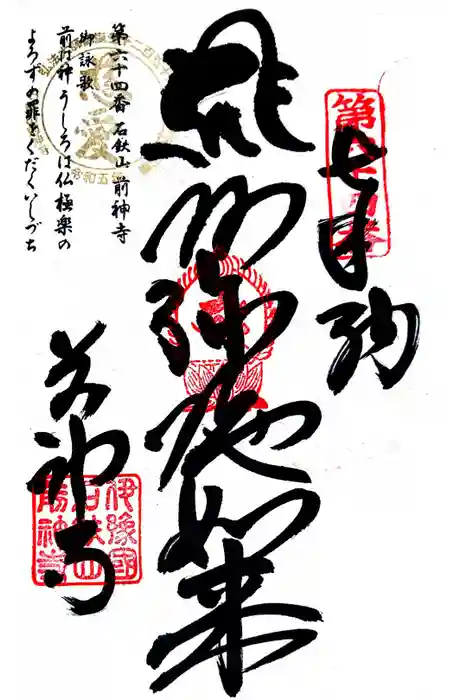 奉納
第六十四番
阿弥陀如来
前神寺
伊豫國
石鈇山
前神寺
第六十四番 石鈇山 前神寺
御詠歌
前は神 うしろは仏 極楽の
よろずの罪を くだく いしづち
令和五